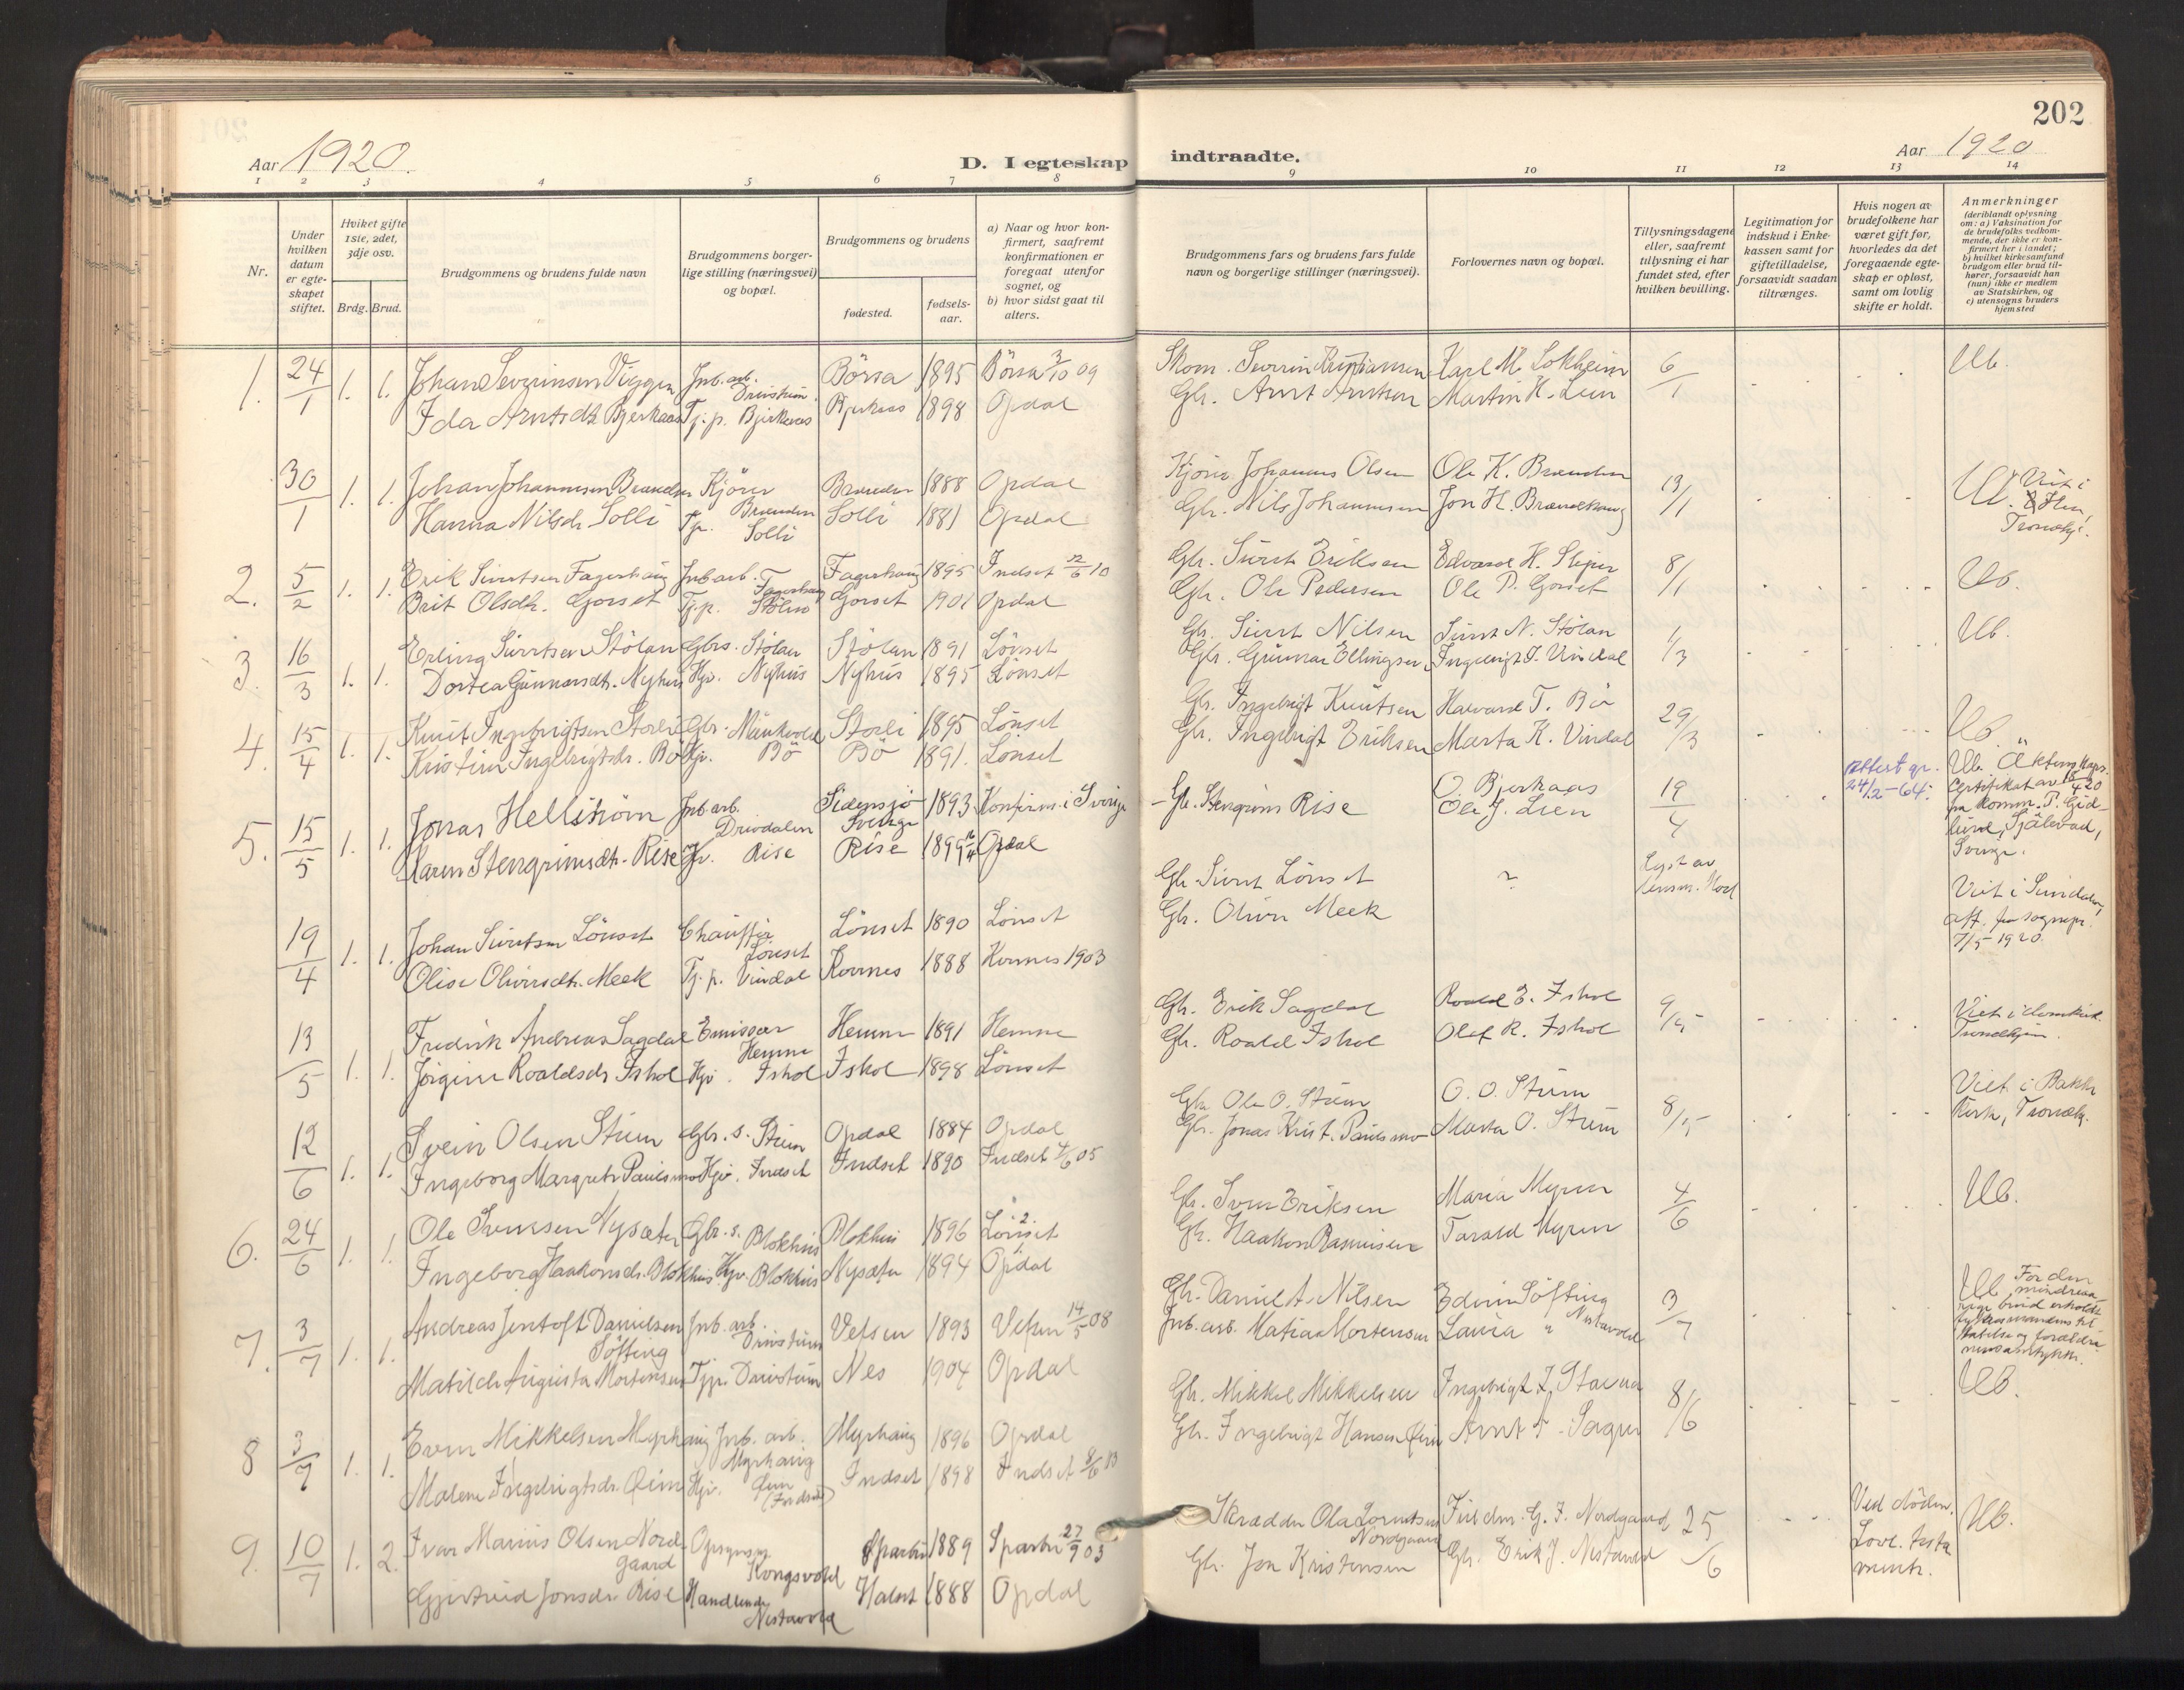 202
Aar 1920.
D. I egteskap indtraadte.
Aar 1920
1 2 3 4 5 6 7 8 9 10 11 12 13 14
Nr.
Under hvilken datum er egteskapet stiftet.
Hviket gifte 1ste, 2det, 3dje osv.
Brdg. Brud.
Brudgommens og brudens fulde navn
Brudgommens borgerlige stilling (næringsvei) og bopæl.
Brudgommens og brudens
fødested.
fødselsaar.
a) Naar og hvor konfirmert, saafremt konfirmationen er foregaat utenfor sognet, og
b) hvor sidst gaat til alters.
Brudgommens fars og brudens fars fulde navn og borgerlige stillinger (næringsvei).
Forlovernes navn og bopæl.
Tillysningsdagene eller, saafremt tillysning ei har fundet sted, efter hvilken bevilling.
Legitimation for indskud i Enkekassen samt for giftetilladelse, forsaavidt saadan tiltrænges.
Hvis nogen av brudefolkene har været gift før, hvorledes da det foregaaende egteskap er opløst, samt om lovlig skifte er holdt.
Anmerkninger
(deriblandt oplysning om: a) Vaksination for de brudefolks vedkommende, der ikke er konfirmert her i landet; b) hvilket kirkesamfund brudgom eller brud tilhører, forsaavidt han (hun) ikke er medlem av Statskirken, og c) utensogns bruders hjemsted
1. 24/1 1. 1. Johan Severinsen Viggen Jnb. arb. Drivstuen Börsa 1895 Börsa 3/10 09 Skom. Severin Kristiansen Karl M. Lokheim 6/1 Ub.
Ida Arntsdt. Bjerkaas Tj. p. Bjerkaas Bjerkaas 1898 Opdal Gbr. Arnt Arntsen Martin H. Lien
30/1 1. 1. Johan Johannessen Brænden Kjører Brænden Brænden 1888 Opdal Kjører Johannes Olsen Ole K. Brænden 13/1 Ub. Viet i
Hanna Nilsdr. Solli Tp. Solli Solli 1881 Opdal Gbr. Nils Johannessen Jon H. Brændhaug Trondhj.
2. 5/2 1. 1. Erik Sivertsen Fagerhaug Jnb arb. Fagerhaug Fagerhaug 1895 Indset 12/6 10 Gbr. Sivert Eriksen Edvard H. Sliper 8/1 Ub.
Brit Olsdtr. Gorset Tjp. Stölen Gorset 1901 Opdal Gbr. Ole Pedersen Ole P. Gorset
3. 16/3 1. 1. Erling Sivertsen Stölan Gbrs. Stölan Stölan 1891 Lönset Gbr. Sivert Nilsen Sivert N. Stölan 1/3 Ub.
Dortea Gunnarsdt. Nyhus Hjv. Nyhus Nyhus 1895 Lönset Gbr. Gunnar Ellingsen Ingebrigt J. Vindal
4. 15/4 1. 1. Knut Ingebrigtsen Storli Gbr. Munkvold Storli 1895 Lönset Gbr. Ingebrigt Knutsen Halvard T. Bö 29/3 Ub.
Kristine Ingebrigtsdr. Bö Hjv. Bö Bö 1891. Lönset Gbr. Ingebrigt Eriksen Marta K. Vindal
5. 15/5 1. 1. Jonas Hellström Jnb arb. Drivdalen Sidensjö Sverige 1893 Konfirm. i Sverige — O. Bjerkaas 19/4 Attest gr. 24/2-64. Ub. Äktenskaps-
Certifikat av 18/4 20
fra Komm. P. Gid-
lund, Själevad,
Sverge.
Karen Stengrimsdtr. Rise Hjv. Rise Rise 1899 16/4 Opdal Gbr. Stengrim Rise Ole J. Lien
19/4 1. 1. Johan Sivertsen Lönset Chauffør Lönset Lönset 1890 Lönset Gbr. Sivert Lönset ? Lyst av lensm. Viet i Sundalen,
att. fra sognepr.
7/5 1920.
Olise Oliversdtr. Meek Tj. p. Vindal Kornes 1888 Kornes 1903 Gbr. Oliver Meek
13/5 1. 1. Fredrik Andreas Sagdal Emissær Hemne Hemne 1891 Hemne Gbr. Erik Sagdal Roald E. Ishol 9/5 Viet i domkirk.
Trondhjem.
Jörgine Roaldsdr. Ishol Hjv. Ishol Ishol 1898 Lönset Gbr. Roald Ishol Olef R. Ishol
12/6 1. 1. Svein Olsen Stuen Gbr. s. Stuen Opdal 1884 Opdal Gbr. Ole O. Stuen O. O. Stuen 8/5 Viet i Bakke
Kirke, Trondhj.
Ingeborg Margrete Paulsmo Hjv. Indset Indset 1890 Indset 4/6 05 Gbr. Jonas Krist. Paulsmo Marta O. Stuen
6. 24/6 1. 1. Ole Svensen Nysæter Gbr. s. Blokhus Blokhus 1896 Lönset Gbr. Sven Eriksen Maria Myren 4/6 Ub.
Ingeborg Haakonsdr. Blokhus Hjv. Blokhus Nysæter 1894 Opdal Gbr. Haakon Rasmusen Tarald Myren
7. 3/7 1. 1. Andreas Jentoft Danielsen Söfting Jnb. arb. Drivstuen Vefsen 1893 Vefsen 14/5 08 Gbr. Daniel A. Nilsen Edvin Söfting 3/7 Ub. For den
mindreaa-
rige brud erholdt
Matilde Augusta Mortensen Tjp. Drivstuen Nes 1904 Opdal Jnb. arb. Matias Mortensen Laura " Nestavold
8 3/7 1. 1. Even Mikkelsen Myrhaug Jnb. arb. Myrhaug Myrhaug 1896 Opdal Gbr. Mikkel Mikkelsen Ingebrigt J. Stavnd 8/6 Ub.
Malene Ingebrigtsdr. Öien Hjv. Öien (Indset) Indset 1898 Indset 8/6 13 Gbr. Ingebrigt Hansen Öien Arnt
9. 10/7 1. 2. Ivar Marius Olsen Nordgaard Opsynsm. Kongsvold Sparbu 1889 Sparbu 27/9 03 Skrædder Ola Lorntsen Nordgaard G. J. Nordgaard 25/6 Ved döden. Lovl. testamente. Ub.
Gjertrud Jonsdr. Rise Handlende Nestavold 1888 Opdal Gbr. Jon Kristensen Gbr. Erik J. Nestavold